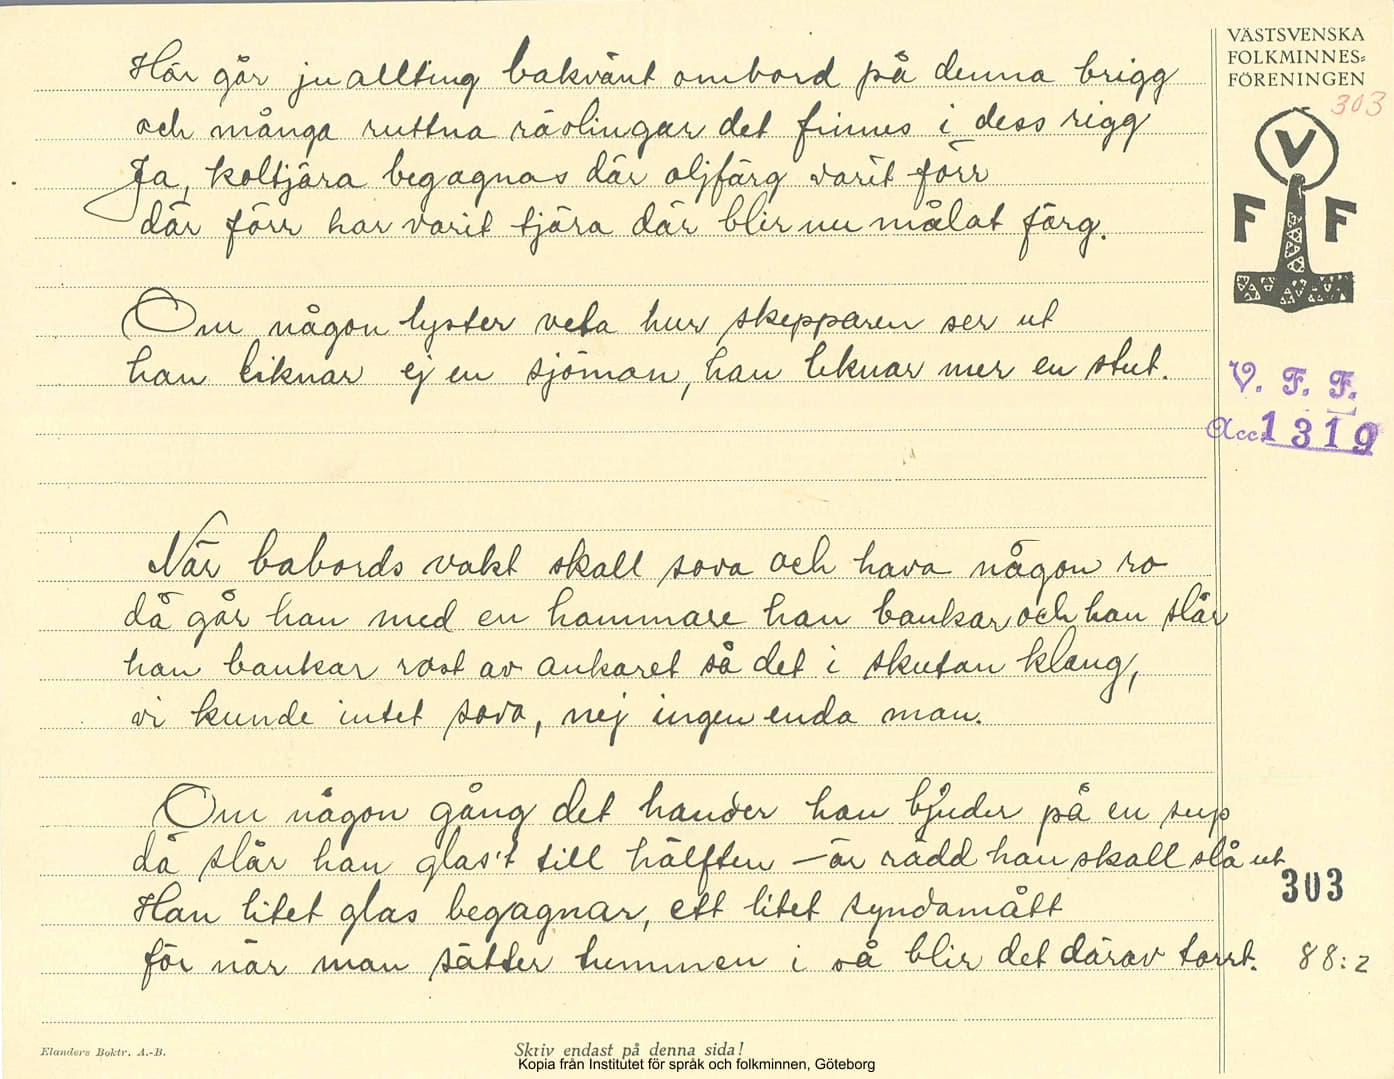 VÄSTSVENSKA
FOLKMINNES-
FÖRENINGEN
303
V
F F
V. F. F.
Acc. 1319
Här går ju allting bakvänt ombord på denna brigg
och många ruttna rävlingar det finnes i dess rigg
Ja, koltjära begagnas där oljfärg varit förr
där förr har varit tjära där blir nu målat färg.
Om någon lyster veta hur skepparen ser ut
han liknar ej en sjöman, han liknar mer en stut.
När babords vakt skall sova och hava någon ro
då går han med en hammare han bankar och han slår
han bankar rost av ankaret så det i skutan klang,
vi kunde intet sova, nej ingen enda man.
Om någon gång det händer han bjuder på en sup
då slår han glas't till hälften – är rädd han skall slå ut
Han litet glas begagnar, ett litet syndamått
för när man sätter tummen i så blir det därav torrt.
303
88:2
Elanders Boktr. A.-B.
Skriv endast på denna sida!
Kopia från Institutet för språk och folkminnen, Göteborg